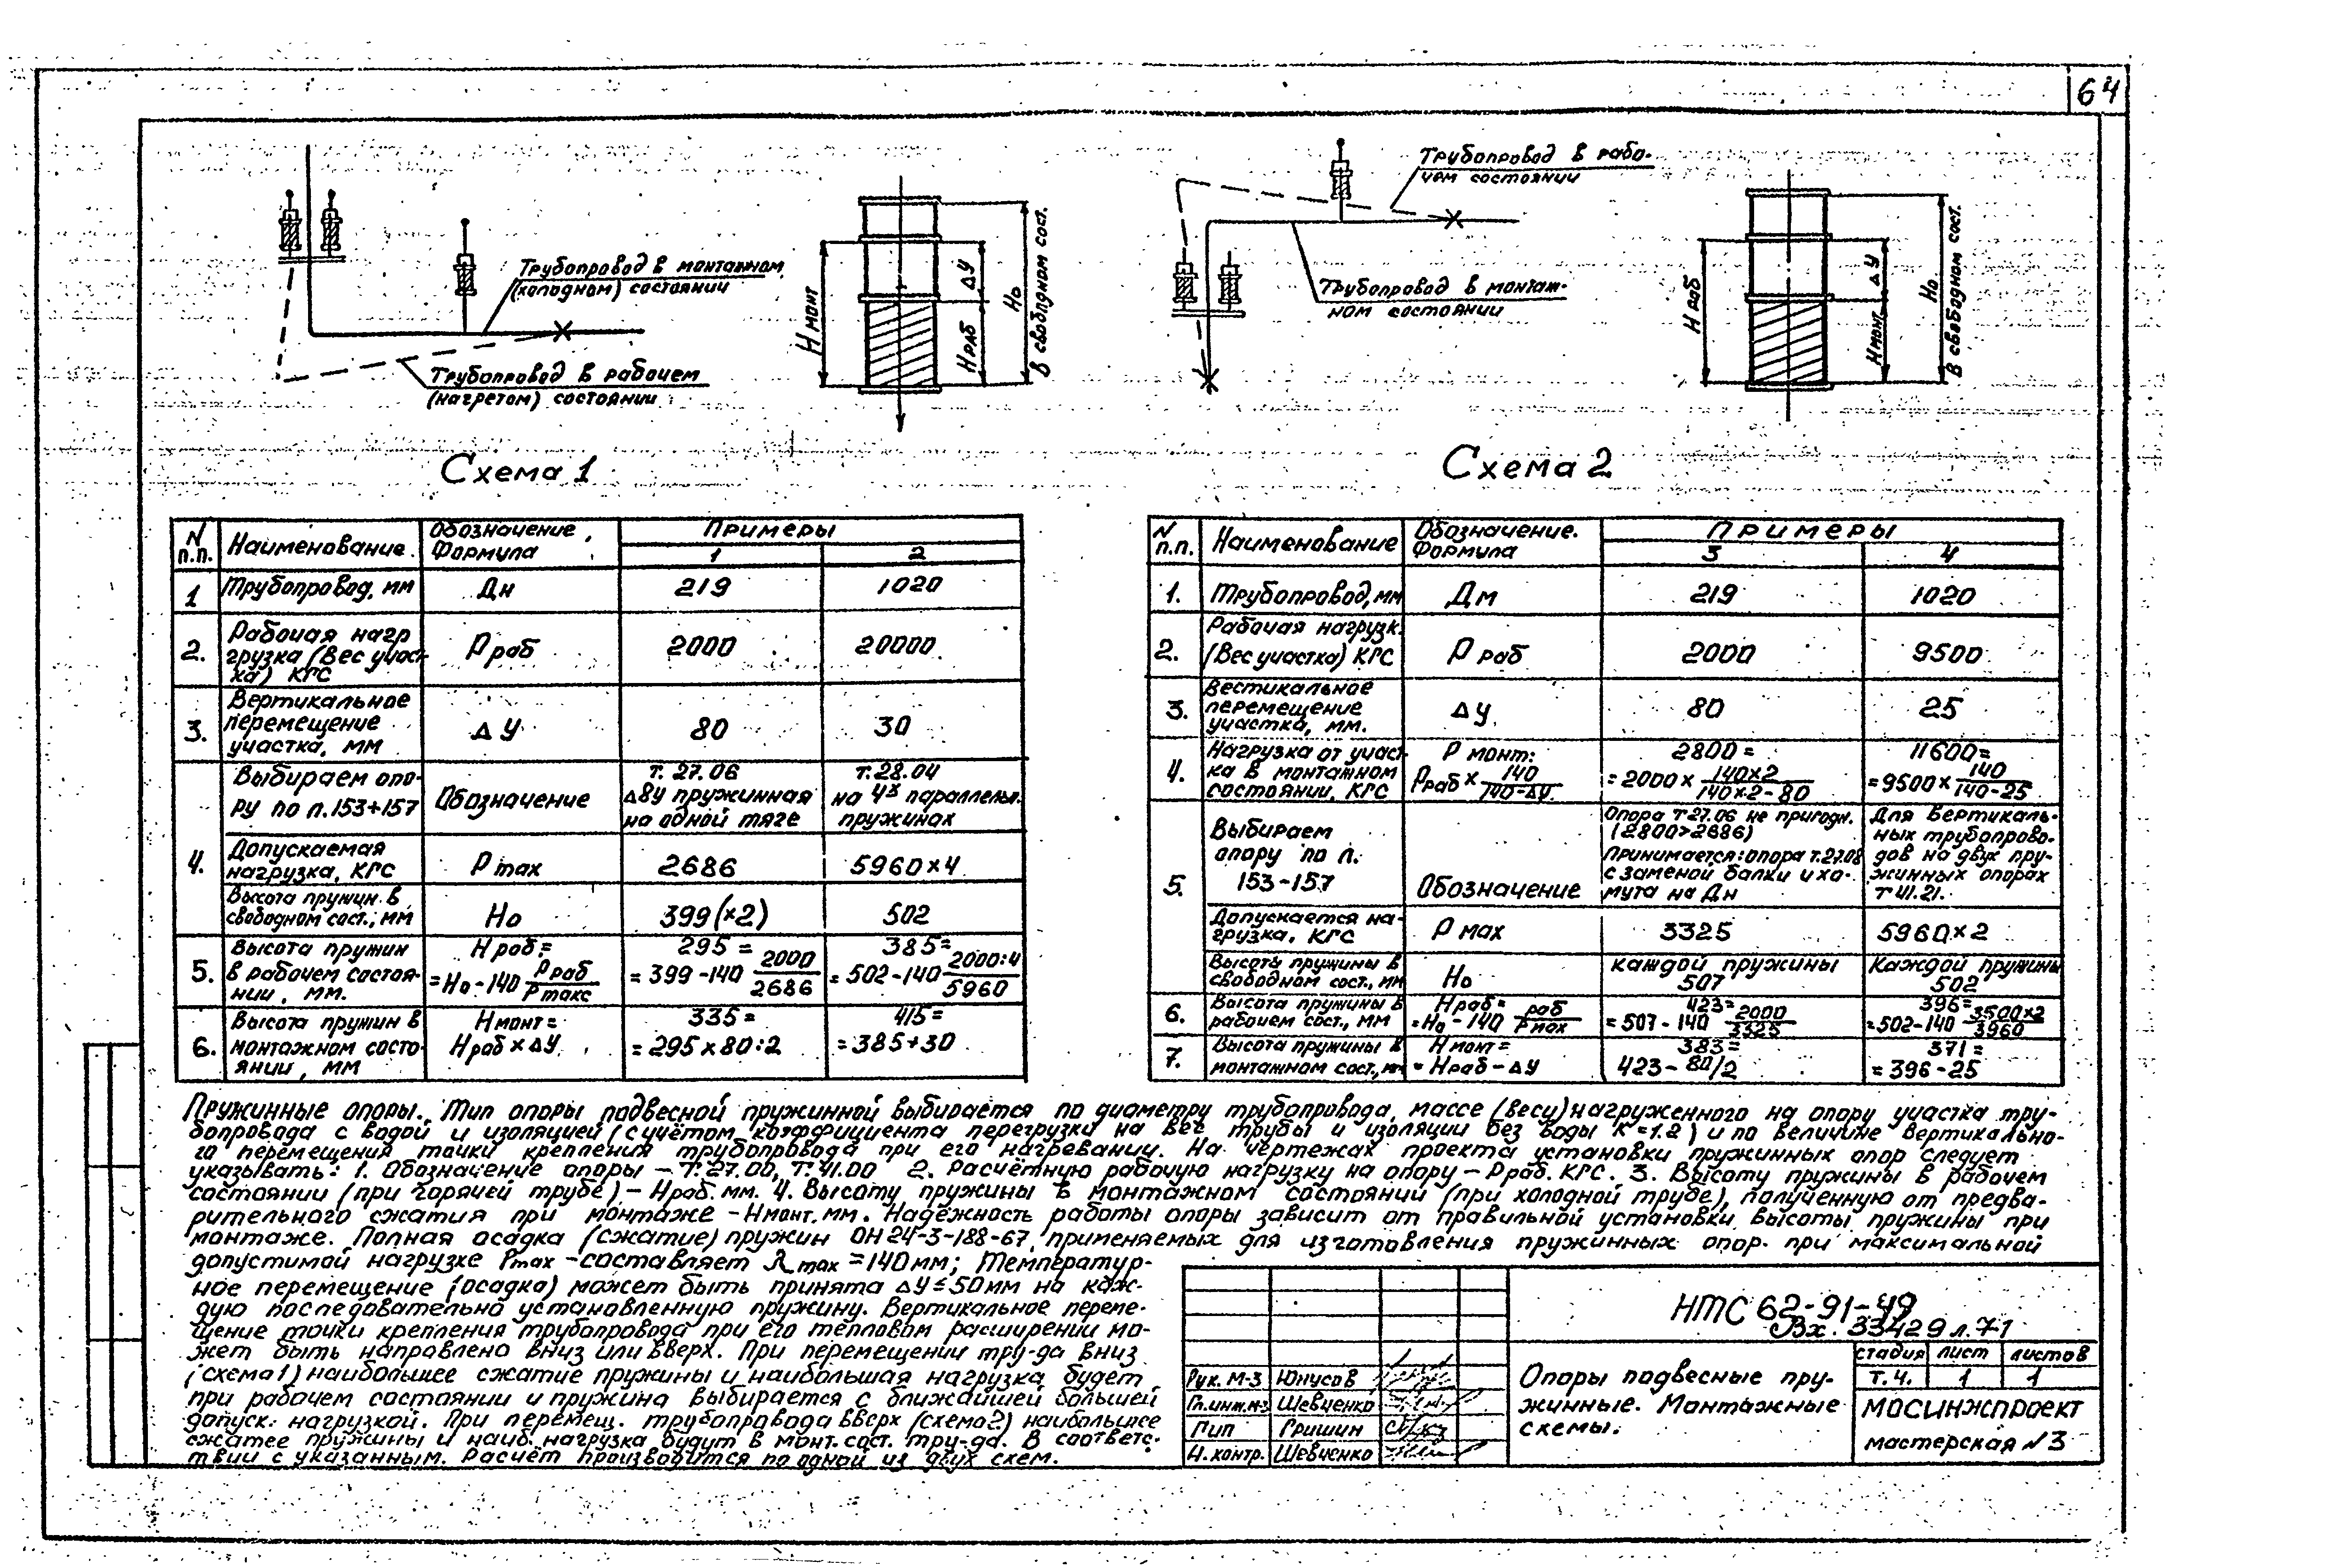 64
Трубопровод в монтажном
(холодном) состоянии
Трубопровод в рабочем
(нагретом) состоянии
Нмонт
ΔУ
Нраб
Но
в свободном сост.
Трубопровод в рабо-
чем состоянии
Трубопровод в монтаж-
ном состоянии
Нраб
ΔУ
Нмонт
Но
в свободном сост.
Схема 1
Схема 2
N п.п. Наименование Обозначение, Формула Примеры
1 2
1 Трубопровод, мм Дн 219 1020
2. Рабочая нагр
грузка (вес учас-
ка) КГС Рраб 2000 20000
3. Вертикальное
перемещение
участка, мм ΔУ 80 30
4. Выбираем опо-
ру по п.153÷157 Обозначение
т. 27.06
Δ8у пружинная
на одной тяге
т.28.04
на 4х параллельн.
пружинах
Допускаемая
нагрузка, КГС Р max 2686 5960×4
Высота пружин в
свободном сост., мм Но 399(×2) 502
5. Высота пружин
в рабочем состоя-
нии, мм.
Нраб=
=Но-140 Рраб/Рмакс
295=
=399-140 2000/2686
385=
=502-140 2000:4/5960
6. Высота пружин в
монтажном состо-
янии, мм
Нмонт=
Нраб×ΔУ
335=
=295×80:2
415=
=385+30
N п.п. Наименование Обозначение. Формула Примеры
3 4
1. Трубопровод, мм Дм 219 1020
2. Рабочая нагрузк.
(Вес участка) КГС Р раб 2000 9500
3. Вестикальное
перемещение
участка, мм. ΔУ 80 25
4. Нагрузка от учас-
ка в монтажном
состоянии, КГС
Р монт:
Рраб × 140/140-ΔУ
2800=
=2000× 140×2/140×2-80
11600=
=9500× 140/140-25
5. Выбираем
опору по п.
153-157 Обозначение
Опора т 27.06 не пригодн.
(2800>2686)
Принимается: опора т.27.08
с заменой балки и хо-
мута на Дн
Для Вертикаль-
ных трубопрово-
дов на двух пру-
жинных опорах
т 41.21.
Допускается на-
грузка, КГС Р мах 3325 5960×2
Высоты пружины в
свободном сост., мм Но
каждой пружины
507
Каждой пружины
502
6. Высота пружины в
рабочем сост., мм
Нраб=
=Но-140 Рраб/Рмах
423=
=507-140 2000/3325
396=
=502-140 3500×2/3960
7. Высота пружины в
монтажном сост., мм
Нмонт=
=Нраб-ΔУ
383=
423-80/2
371=
=396-25
Пружинные опоры. Тип опоры подвесной пружинной выбирается по диаметру трубопровода, массе (весу) нагруженного на опору участка тру-
бопровода с водой и изоляцией (с учётом коэффициента перегрузки на вес трубы и изоляции без воды К=1.2) и по величине вертикально-
го перемещения точки крепления трубопровода при его нагревании. На чертежах проекта установки пружинных опор следует
указывать: 1. Обозначение опоры – Т.27.00, Т.41.00 2. Расчётную рабочую нагрузку на опору – Рраб. КГС. 3. Высоту пружины в рабочем
состоянии (при горячей трубе) – Нраб. мм. 4. Высоту пружины в монтажном состоянии (при холодной трубе), полученную от предва-
рительного сжатия при монтаже – Нмонт. мм. Надёжность работы опоры зависит от правильной установки высоты пружины при
монтаже. Полная осадка (сжатие) пружин ОН 24-3-188-67, применяемых для изготовления пружинных опор. при максимальной
допустимой нагрузке Рmax – составляет λmax = 140 мм; Температур-
ное перемещение (осадка) может быть принята ΔУ ≤ 50 мм на каж-
дую последовательно установленную пружину. Вертикальное переме-
щение точки крепления трубопровода при его тепловом расширении мо-
жет быть направлено вниз или вверх. При перемещении тру-да вниз
(схема 1) наибольшее сжатие пружины и наибольшая нагрузка будет
при рабочем состоянии и пружина выбирается с ближайшей большей
допуск. нагрузкой. При перемещ. трубопровода вверх (схема 2) наибольшее
сжатее пружины и наиб. нагрузка будут в монт. сост. тру-да. В соответс-
твии с указанным. Расчёт производится по одной из двух схем.
НТС 62-91-49
Вх. 33429 л.71
Рук. М-3 Юнусов
Гл.инж.м-3 Шевченко
Гип Гришин
Н. контр. Шевченко
Опоры подвесные пру-
жинные. Монтажные
схемы.
стадия лист листов
Т.Ч. 1 1
МОСИНЖПРОЕКТ
мастерская N3